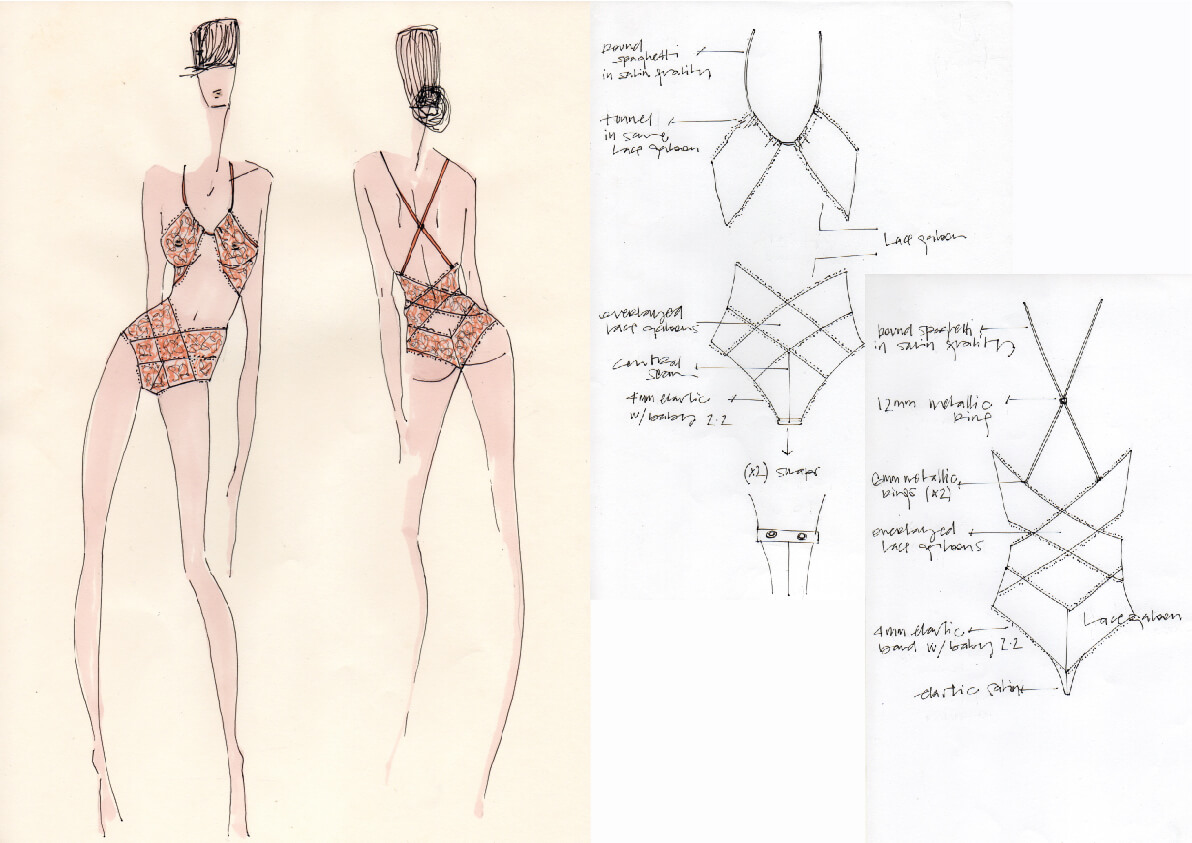 bound
spaghetti
in satin quality
tunnel
in same
Lace galoon
Lace galoon
overlayed
lace galoons
central
seam
4mm elastic
w/ baby 2.2
(x2) snaps
bound spaghetti
in satin quality
12mm metallic
ring
metallic
rings (x2)
overlayed
lace galoons
Lace galoon
4mm elastic
band w/ baby 2.2
elastic satin